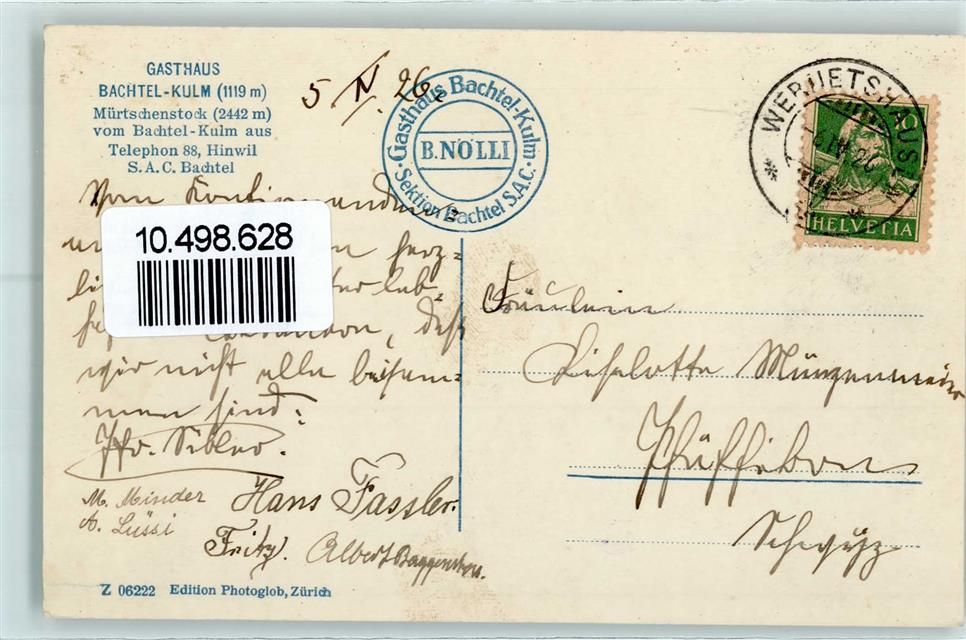 GASTHAUS
BACHTEL-KULM (1119 m)
Mürtschenstock (2442 m)
vom Bachtel-Kulm aus
Telephon 88, Hinwil
S.A.C. Bachtel
5 IV. 26.
Gasthaus Bachtel-Kulm
B. NÖLLI
Sektion Bachtel S.A.C.
HELVETIA
Vom
10.498.628
herz-
daß
wir nicht alle beisam-
men sind.
Pfr. Sibler.
M. Minder
A. Lüssi
Hans Fassler.
Fritz.
Albert
Fräulein
Liselotte Münzenmeier
Pfäffikon
Schwyz
Z 06222 Edition Photoglob, Zürich